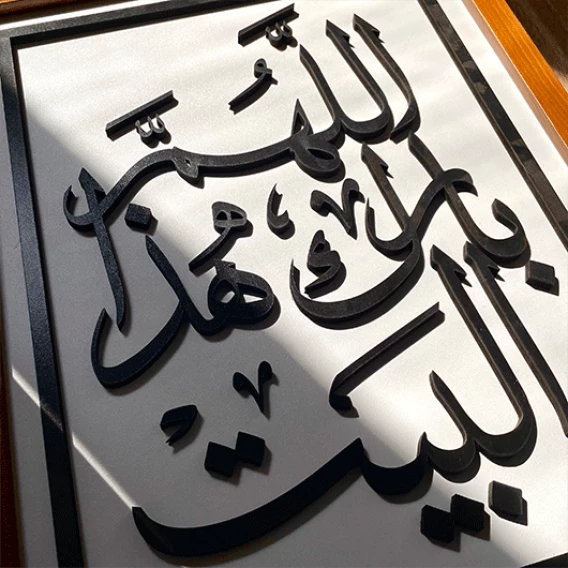 اللهم
بارك هذا
البيت